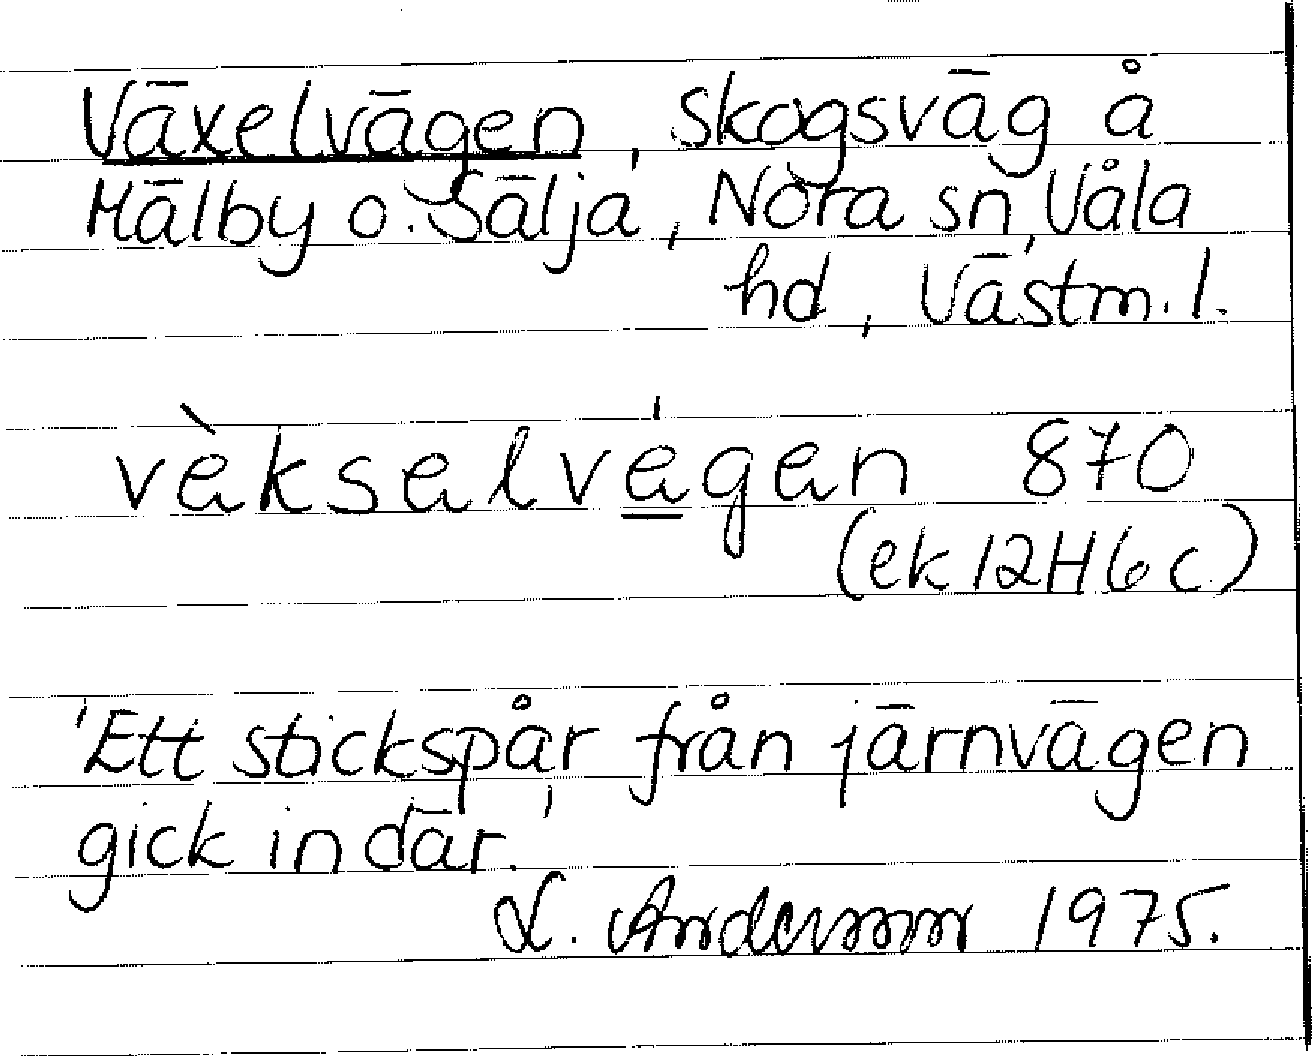 Växelvägen, skogsväg å
Hälby o. Sälja, Nora sn, Våla
hd, Västm. l.
vèksalvágan 870
(ek 12H6c)
'Ett stickspår från järnvägen
gick in där.'
L. Andersson 1975.